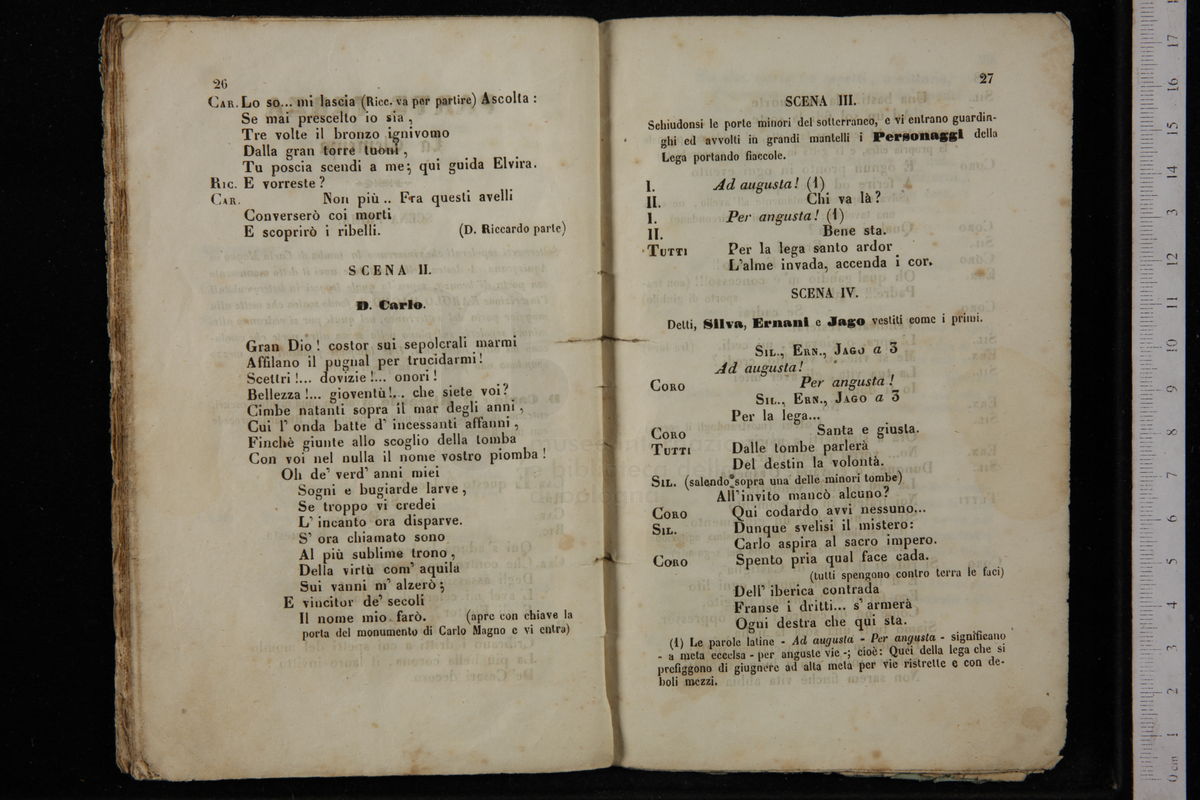 26
CAR. Lo so... mi lascia (Ricc. va per partire) Ascolta :
Se mai prescelto io sia ,
Tre volte il bronzo ignivomo
Dalla gran torre tuoni ,
Tu poscia scendi a me; qui guida Elvira.
RIC. E vorreste ?
CAR. Non più .. Fra questi avelli
Converserò coi morti
E scoprirò i ribelli. (D. Riccardo parte)
SCENA II.
D. Carlo.
Gran Dio ! costor sui sepolcrali marmi
Affilano il pugnal per trucidarmi !
Scettri !... dovizie !... onori !
Bellezza !... gioventù !... che siete voi ?
Cimbe natanti sopra il mar degli anni ,
Cui l' onda batte d' incessanti affanni ,
Finchè giunte allo scoglio della tomba
Con voi nel nulla il nome vostro piomba !
Oh de' verd' anni miei
Sogni e bugiarde larve ,
Se troppo vi credei
L' incanto ora disparve.
S' ora chiamato sono
Al più sublime trono ,
Della virtù com' aquila
Sui vanni m' alzerò ;
E vincitor de' secoli
Il nome mio farò. (apre con chiave la
porta del monumento di Carlo Magno e vi entra)
27
SCENA III.
Schiudonsi le porte minori del sotterraneo, e vi entrano guardin-
ghi ed avvolti in grandi mantelli i Personaggi della
Lega portando fiaccole.
I. Ad augusta! (1)
II. Chi va là ?
I. Per angusta! (1)
II. Bene sta.
TUTTI Per la lega santo ardor
L'alme invada, accenda i cor.
SCENA IV.
Detti, Silva, Ernani e Jago vestiti come i primi.
SIL., ERN., JAGO a 3
Ad augusta!
CORO Per angusta !
SIL., ERN., JAGO a 3
Per la lega...
CORO Santa e giusta.
TUTTI Dalle tombe parlerà
Del destin la volontà.
SIL. (salendo sopra una delle minori tombe)
All'invito mancò alcuno?
CORO Qui codardo avvi nessuno...
SIL. Dunque svelisi il mistero:
Carlo aspira al sacro impero.
CORO Spento pria qual face cada.
(tutti spengono contro terra le faci)
Dell' iberica contrada
Franse i dritti... s' armerà
Ogni destra che qui sta.
(1) Le parole latine - Ad augusta - Per angusta - significano
- a meta eccelsa - per anguste vie -; cioè: Quei della lega che si
prefiggono di giugnere ad alta meta per vie ristrette e con de-
boli mezzi.